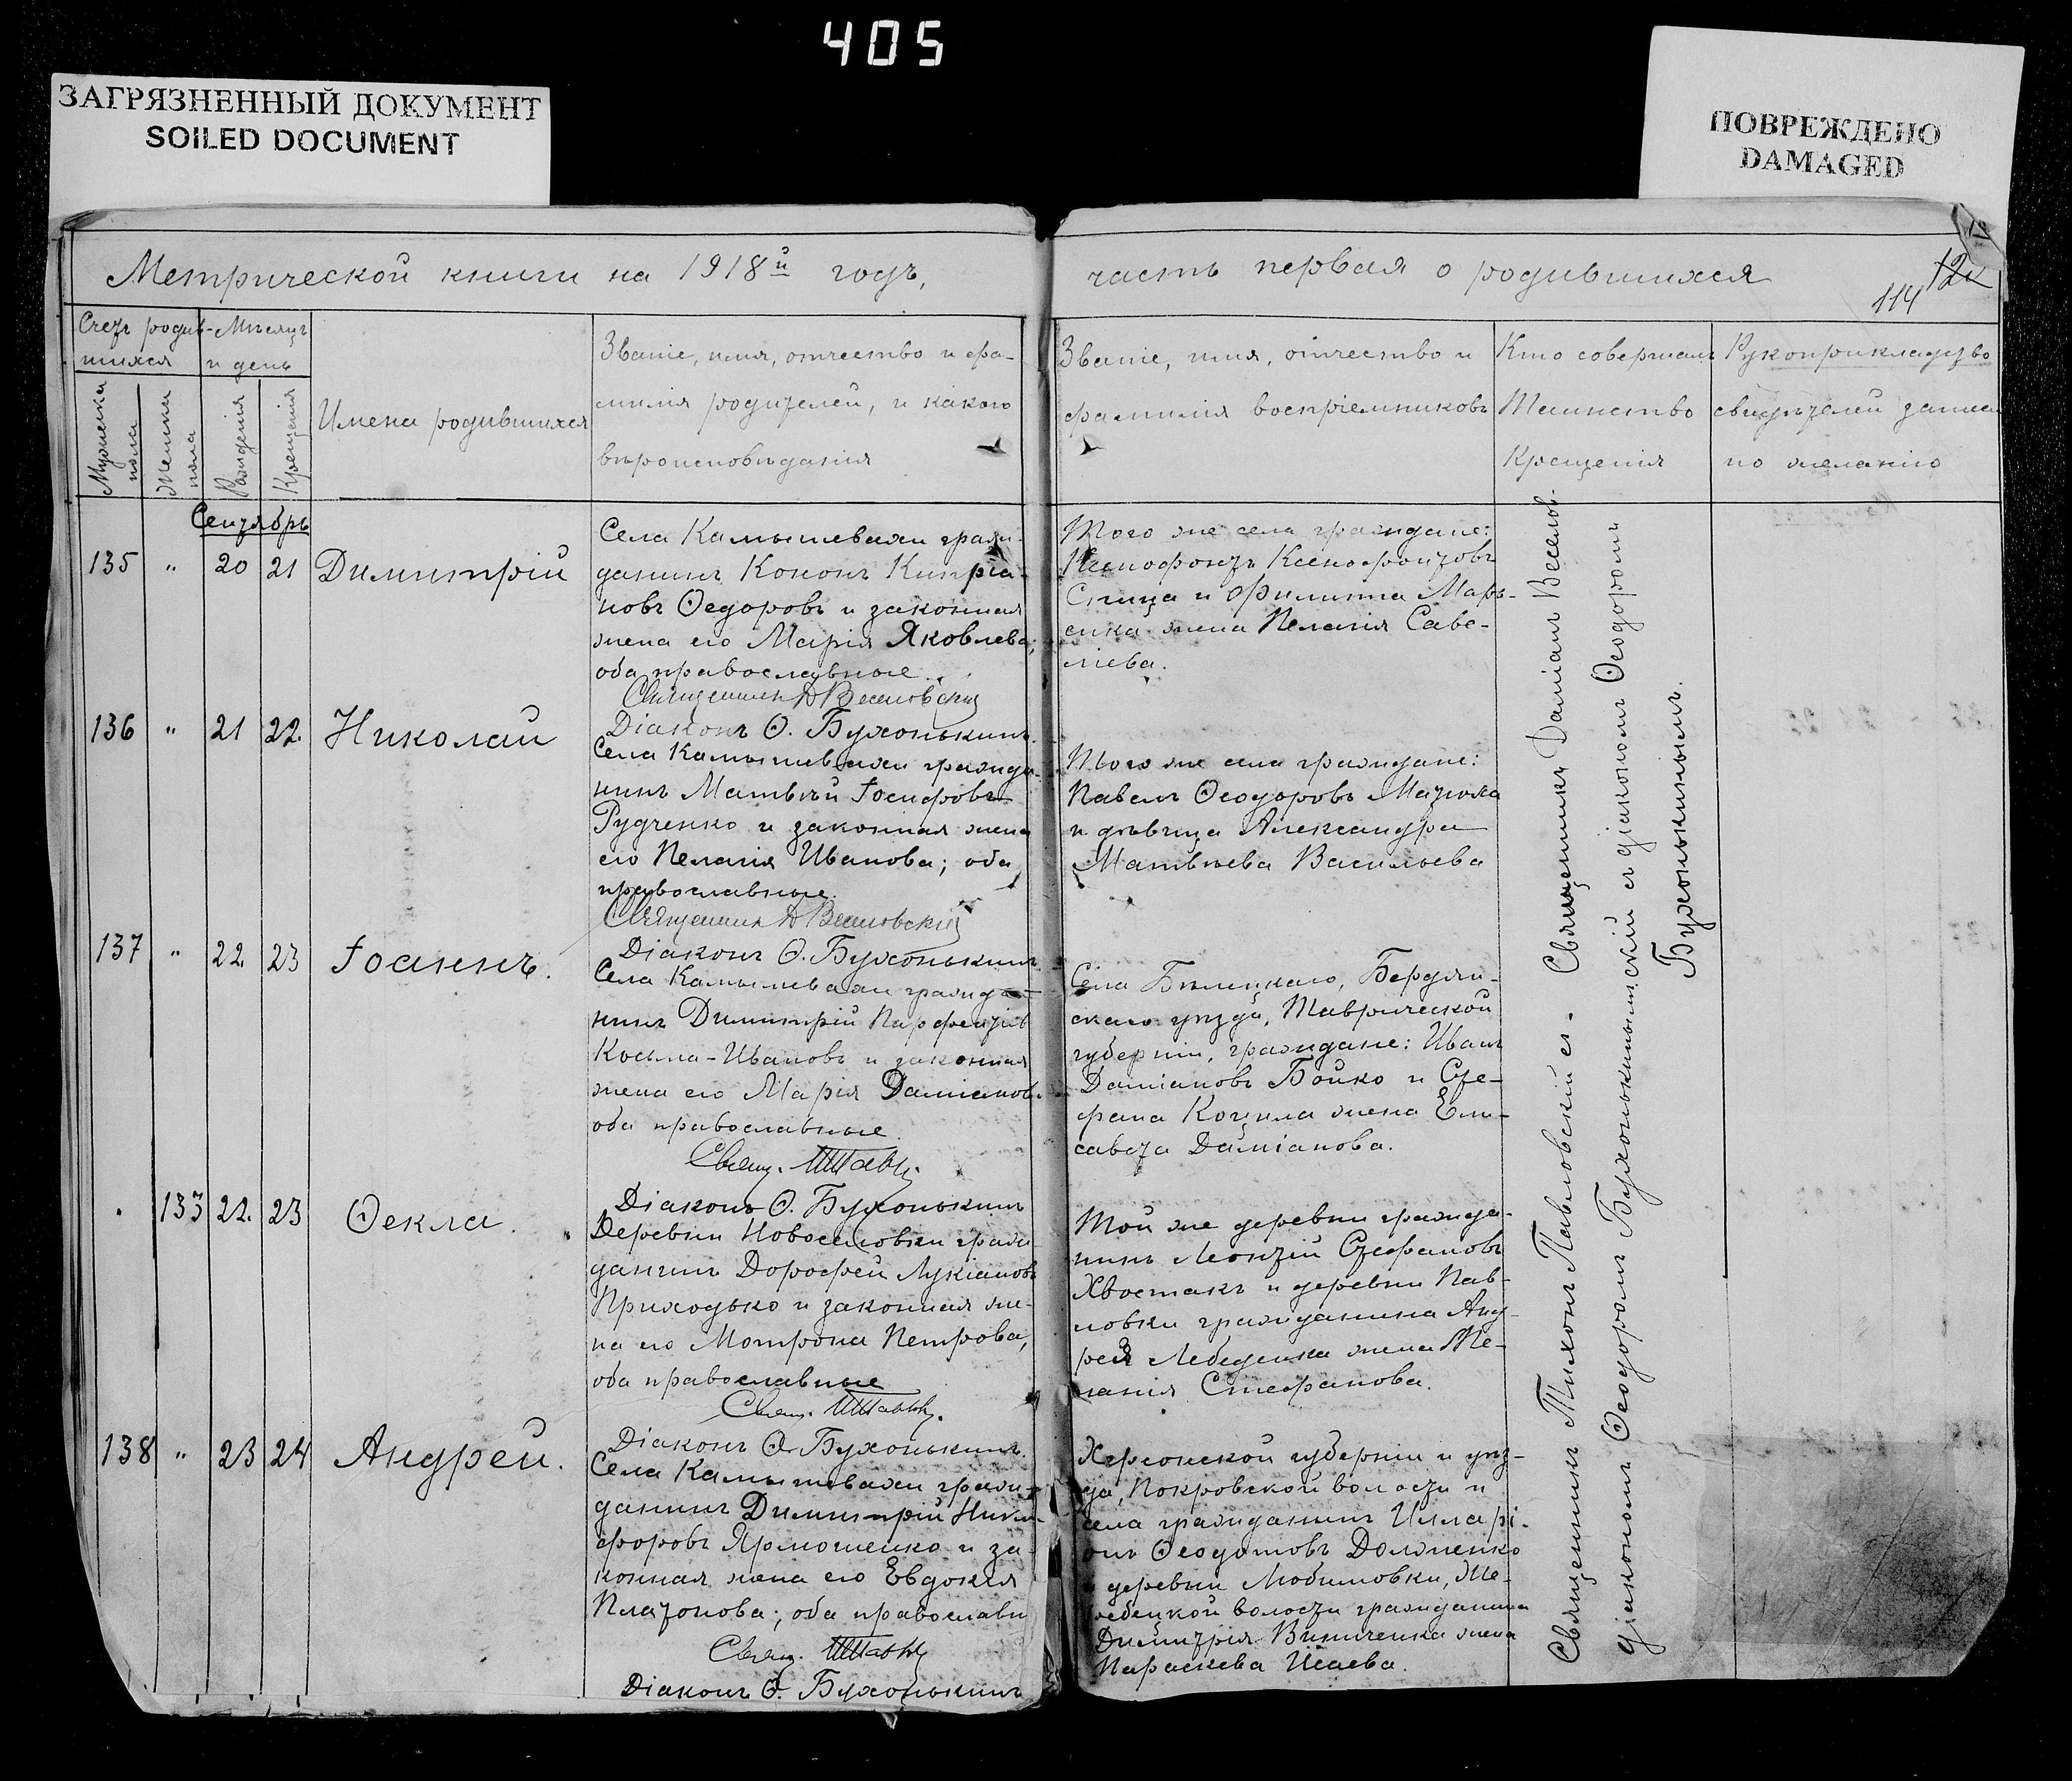 405
ЗАГРЯЗНЕННЫЙ ДОКУМЕНТ
SOILED DOCUMENT
ПОВРЕЖДЕНО
DAMAGED
Метрической книги на 1918й годъ,
часть первая о родившихся
114
Счетъ родив-
шихся
Мѣсяцъ
и день
Мужеска пола
Женска пола
Рожденія
Крещенія
Имена родившихся
Званіе, имя, отчество и фа-
милія родителей, и какого
вѣроисповѣданія
Званіе, имя, отчество и
фамилія воспріемниковъ
Кто совершалъ
Таинство
Крещенія
Рукоприкладство
свидѣтелей записи
по желанію
Сентябрь
135 " 20 21 Димитрій
Села Камышевахи граж-
данинъ Кононъ Кипріа-
новъ Ѳедоровъ и законная
жена его Марія Яковлева;
оба православные.
Священникъ Д Веселовскій
Діаконъ Ѳ. Бухонькинъ.
Того же села граждане:
Ксенофонтъ Ксенофонтовъ
Спица и Филиппа Марь-
енка жена Пелагія Саве-
ліева.
136 " 21 22. Николай
Села Камышевахи гражда-
нинъ Матвѣй Іосифовъ
Рудченко и законная жена
его Пелагія Иванова; оба
православные.
Священникъ Д Веселовскій
Діаконъ Ѳ. Бухонькинъ
Того же села граждане:
Павелъ Ѳеодоровъ
и дѣвица Александра
Матвѣева Васильева
137 " 22. 23 Іоаннъ.
Села Камышевахи гражда-
нинъ Димитрій Парфентіев
Косьма-Ивановъ и законная
жена его Марія Даміанов.
оба православные.
Свящ.
Діаконъ Ѳ. Бухонькинъ
Села Бѣлецкаго, Бердян-
скаго уѣзда, Таврической
губерніи, граждане: Иванъ
Даміановъ Бойко и Сте-
фана Коцила жена Ели-
савета Даміанова.
133 22. 23 Ѳекла.
Деревни Новоселовки граж-
данинъ Дорофей Лукіановъ
Приходько и законная же-
на его Мотрона Петрова,
оба православные
Свящ.
Діаконъ Ѳ. Бухонькинъ.
Той же деревни гражда-
нинъ Леонтій Стефановъ
Хвостакъ и деревни Пав-
ловки гражданина Анд-
рея Лебеденка жена Ме-
ланія Стефанова.
138 " 23 24 Андрей.
Села Камышевахи граж-
данинъ Димитрій Ники-
форовъ Ярмошенко и за-
конная жена его Евдокія
Платонова; оба православн
Свящ.
Діаконъ Ѳ. Бухонькинъ
Херсонской губерніи и уѣз-
да, Покровской волости и
села гражданинъ Иларі-
онъ Ѳеодотовъ Долженко
и деревни Любимовки, Же-
ребецкой волости гражданина
Димитрія Винниченка жена
Параскева Исаева.
Священникъ Даміанъ Веселов-
скій съ діакономъ Ѳеодоромъ
Бухонькинымъ.
Священникъ Тихонъ Павловскій съ
діакономъ Ѳеодоромъ Бухонькинымъ.